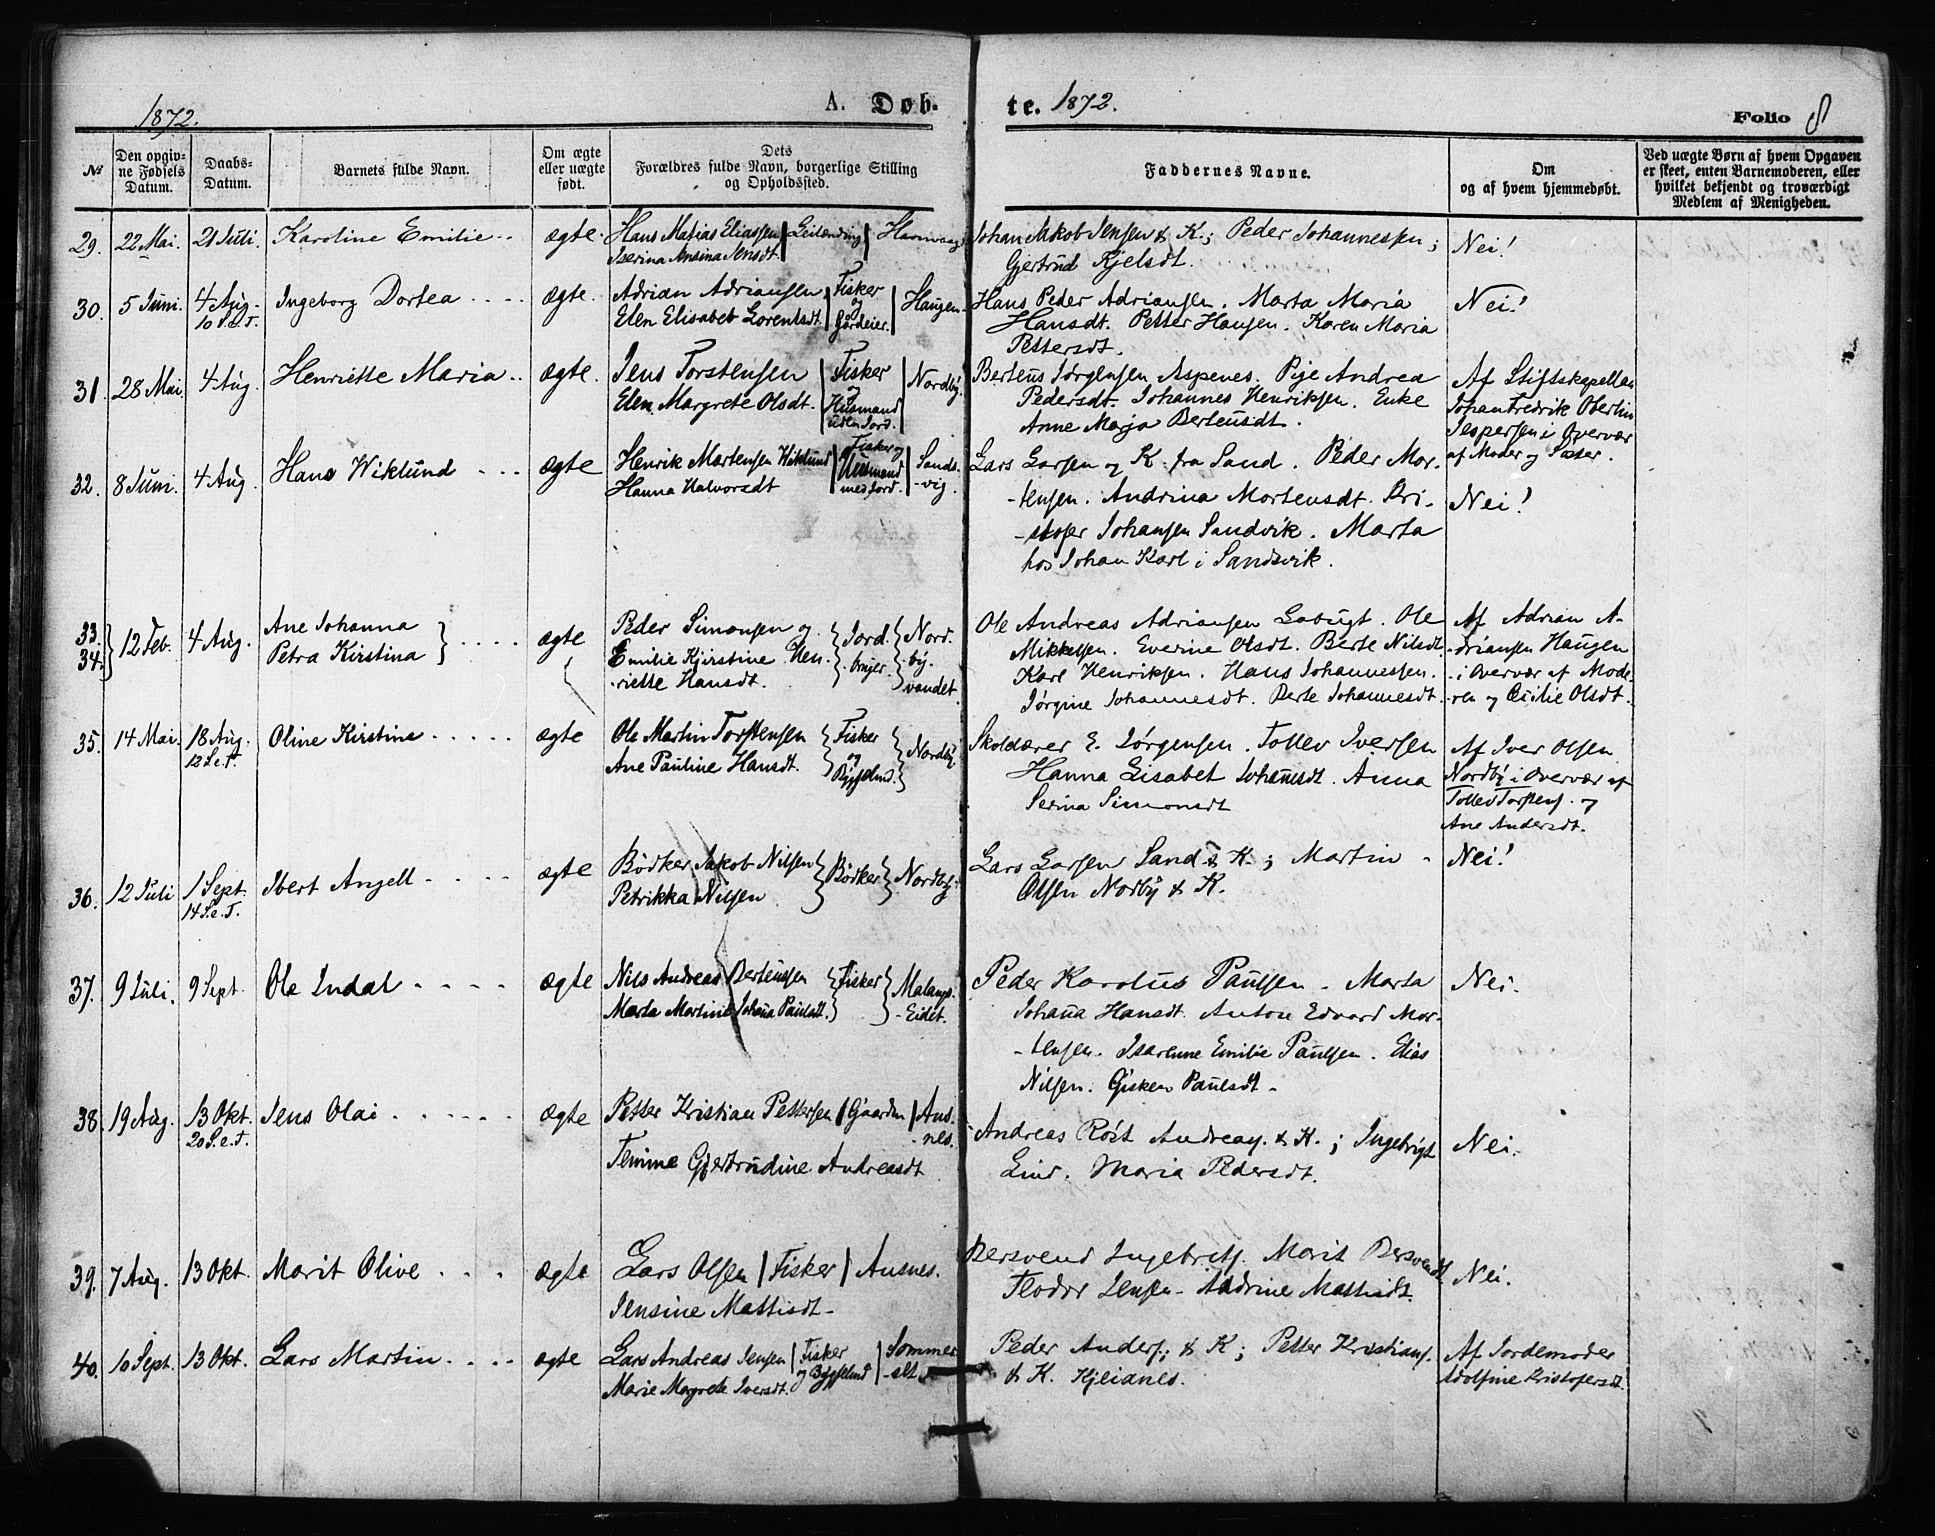 1872. A. Døb. te. 1872. Folio 8
№
Den opgiv-
ne Fødsels
Datum.
Daabs-
Datum.
Barnets fulde Navn.
Om ægte
eller uægte
født.
Dets
Forældres fulde Navn, borgerlige Stilling
og Opholdssted.
Faddernes Navne.
Om
og af hvem hjemmedøbt.
Ved uægte Børn af hvem Opgaven
er skeet, enten Barnemoderen, eller
hvilket bekjendt og troværdigt
Medlem af Menigheden.
29. 22 Mai. 21 Juli. Karoline Emilie ægte.
Hans Matias Eliassen Leilænding Havnvaag
Iserina Ansina Jensdt.
Johan Jakob Jensen & K; Peder Johannessen;
Gjertrud Kjelsdt.
Nei!
30. 5 Juni. 4 Aug. Ingeborg Dortea ægte.
10 S.e.T.
Adrian Adriansen Fisker og Gårdeier. Haugen
Elen Elisabet Lorentsdt.
Hans Peder Adriansen. Marta Maria
Hansdt. Petter Hansen. Karen Maria
Pettersdt.
Nei!
31 28 Mai 4 Aug. Henriette Maria ægte.
Jens Torstensen Fisker og Husmand uden Jord. Nordby.
Elen Margrete Olsdt.
Berteus Jørgensen Aspenes. Pije Andrea
Pedersdt. Johannes Henriksen. Enke
Anne Marja Berteusdt.
Af Stiftskapellan
Johan Fredrik Oberlin
Jespersen i Overvær
af Moder og Søster.
32. 8 Juni. 4 Aug. Hans Wiklund ægte
Henrik Mortensen Wiklund Fisker og Husmand med Jord. Sands-
-vig.
Hanna Halvorsdt
Lars Larsen og K. fra Sand. Peder Mor-
-tensen. Andrina Mortensdt. Kri-
-stofer Johansen Sandvik. Marta
hos Johan Karl i Sandsvik.
Nei!
33. 34. 12 Feb. 4 Aug. Ane Johanna
Petra Kirstina ægte
Peder Simonsen og Jord- bruger. Nord-
-by-
vandet
Emilie Kjirstine Hen-
-riette Hansdt.
Ole Andreas Adriansen Løbugt. Ole
Mikkelsen. Everine Olsdt. Berte Nilsdt.
Karl Henriksen. Hans Johannessen.
Jørgine Johannesdt. Berte Johannesdt.
Af Adrian A-
-driansen Haugen
i Overvær af Mode-
ren og Cecilie Olsdt.
35. 14 Mai. 18 Aug. Oline Kirstine ægte
12 S.e.T.
Ole Martin Torstensen Fisker og Bygselmd. Nordby
Ane Pauline Hansdt.
Skolelærer E. Jørgensen. Tollev Iversen
Hanna Lisabet Johannesdt. Anna
Serina Simonsdt
Af Iver Olsen
Nordby i Overvær af
Tollev Torstens. og
Ane Andersdt.
36. 12 Juli 1 Sept. Ibert Angell ægte
14 S.e.T.
Bødker Jakob Nilsen Bødker Nordby
Petrikka Nilsen
Lars Larsen Sand & K.; Martin
Olsen Nordby & K.
Nei!
37. 9 Juli. 9 Sept. Ole Indal ægte
Nils Andreas Berteussen Fisker Malangs-
-Eidet.
Marta Martine Johana Paulsdt.
Peder Karolus Paulsen. Marta
Johana Hansdt. Anton Edvard Mor-
-tensen. Isarenne Emilie Paulsen. Elias
Nilsen. Gisken Paulsdt.
Nei.
38. 19 Aug. 13 Okt. Jens Olai ægte
20 S.e.T.
Petter Kristian Pettersen Gaardm Aus-
-nes.
Temine Gjertrudine Andreasdt
Andreas Röst Andreas. & K.; Ingebrigt
Lind. Maria Pedersdt.
Nei.
39. 7 Aug. 13 Okt. Marit Olive ægte
Lars Olsen Fisker Ausnes.
Jensine Mattisdt.
Bersvend Ingebrets. Marit Bersvendt
Teodor Jensen. Andrine Mattisdt.
Nei.
40. 10 Sept. 13 Okt. Lars Martin ægte
Lars Andreas Jensen Fisker og Bygselmd Sommer-
-selt
Marie Margrete Iversdt.
Peder Anders. & K; Petter Kristians.
& K. Kjeidnes.
Af Jordemoder
Adolfine Kristofersdt.